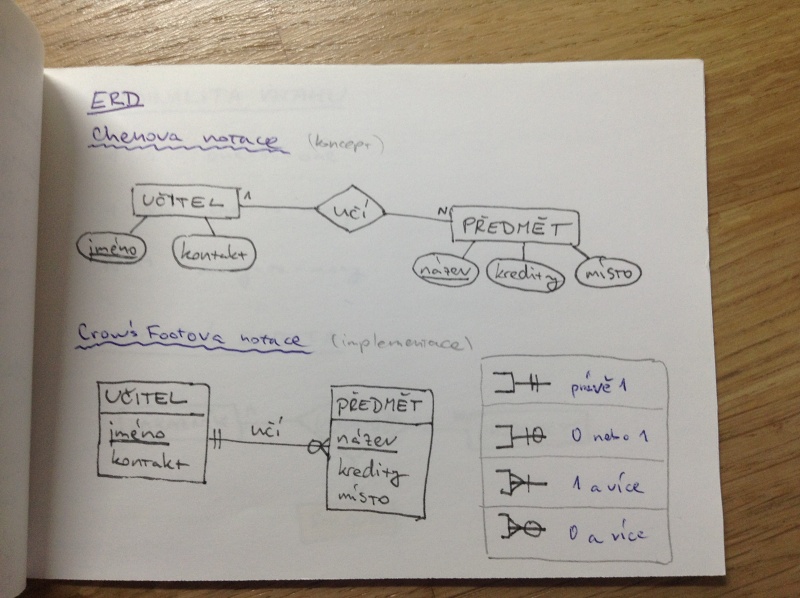 ERD
Chenova notace (koncept)
UČITEL 1 UČÍ N PŘEDMĚT
jméno kontakt název kredity místo
Crow's Footova notace (implementace)
UČITEL
jméno
kontakt
UČÍ
PŘEDMĚT
název
kredity
místo
právě 1
0 nebo 1
1 a více
0 a více